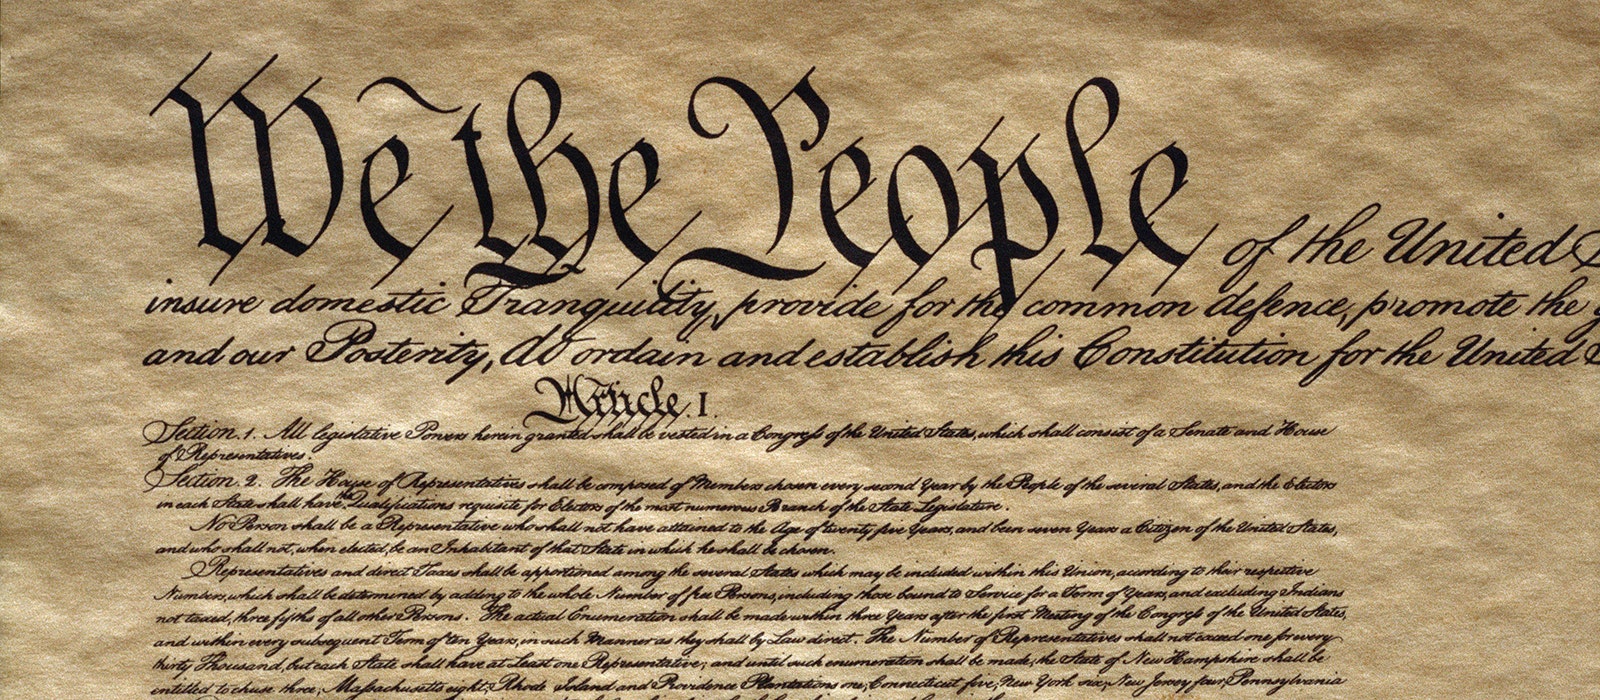 We the People of the United
insure domestic Tranquility, provide for the common defence, promote the
and our Posterity, do ordain and establish this Constitution for the United
Article. I.
Section. 1. All legislative Powers herein granted shall be vested in a Congress of the United States, which shall consist of a Senate and House
of Representatives.
Section. 2. The House of Representatives shall be composed of Members chosen every second Year by the People of the several States, and the Electors
in each State shall have the Qualifications requisite for Electors of the most numerous Branch of the State Legislature.
No Person shall be a Representative who shall not have attained to the Age of twenty five Years, and been seven Years a Citizen of the United States,
and who shall not, when elected, be an Inhabitant of that State in which he shall be chosen.
Representatives and direct Taxes shall be apportioned among the several States which may be included within this Union, according to their respective
Numbers, which shall be determined by adding to the whole Number of free Persons, including those bound to Service for a Term of Years, and excluding Indians
not taxed, three fifths of all other Persons. The actual Enumeration shall be made within three Years after the first Meeting of the Congress of the United States,
and within every subsequent Term of ten Years, in such Manner as they shall by Law direct. The Number of Representatives shall not exceed one for every
thirty Thousand, but each State shall have at Least one Representative; and until such enumeration shall be made, the State of New Hampshire shall be
entitled to chuse three, Massachusetts eight, Rhode Island and Providence Plantations one, Connecticut five, New York six, New Jersey four, Pennsylvania